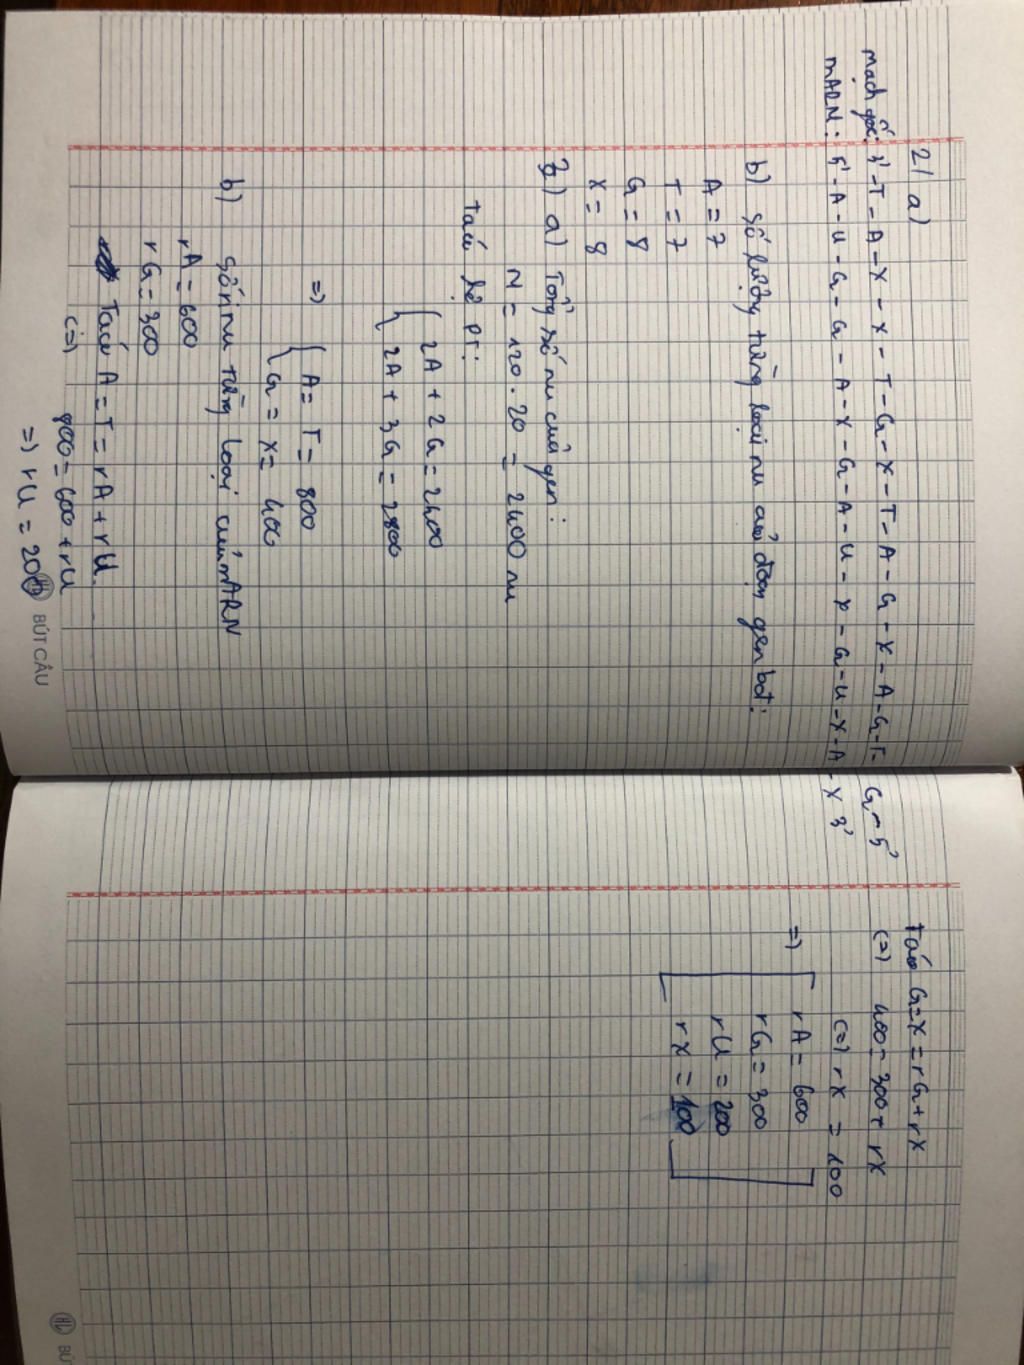 2) a)
Mạch gốc: 3' - T - A - X - X - T - G - X - T - A - G - X - A - G - T - G - 5'
mARN: 5' - A - U - G - G - A - X - G - A - U - X - G - U - X - A - X 3'
b) số lượng từng loại nu của đoạn gen bot:
A = 7
T = 7
G = 8
X = 8
3) a) Tổng số nu của gen:
N = 120 . 20 = 2400 nu
Ta có hệ pt:
{ 2A + 2G = 2400
{ 2A + 3G = 2800
=> { A = T = 800
{ G = X = 400
b) Số nu từng loại của mARN
rA = 600
rG = 300
Ta có A = T = rA + rU
(=) 800 = 600 + rU
=) rU = 200
BÚT CÂU
Ta có G = X = rG + rX
(=) 400 = 300 + rX
(=) rX = 100
=) rA = 600
rG = 300
rU = 200
rX = 100